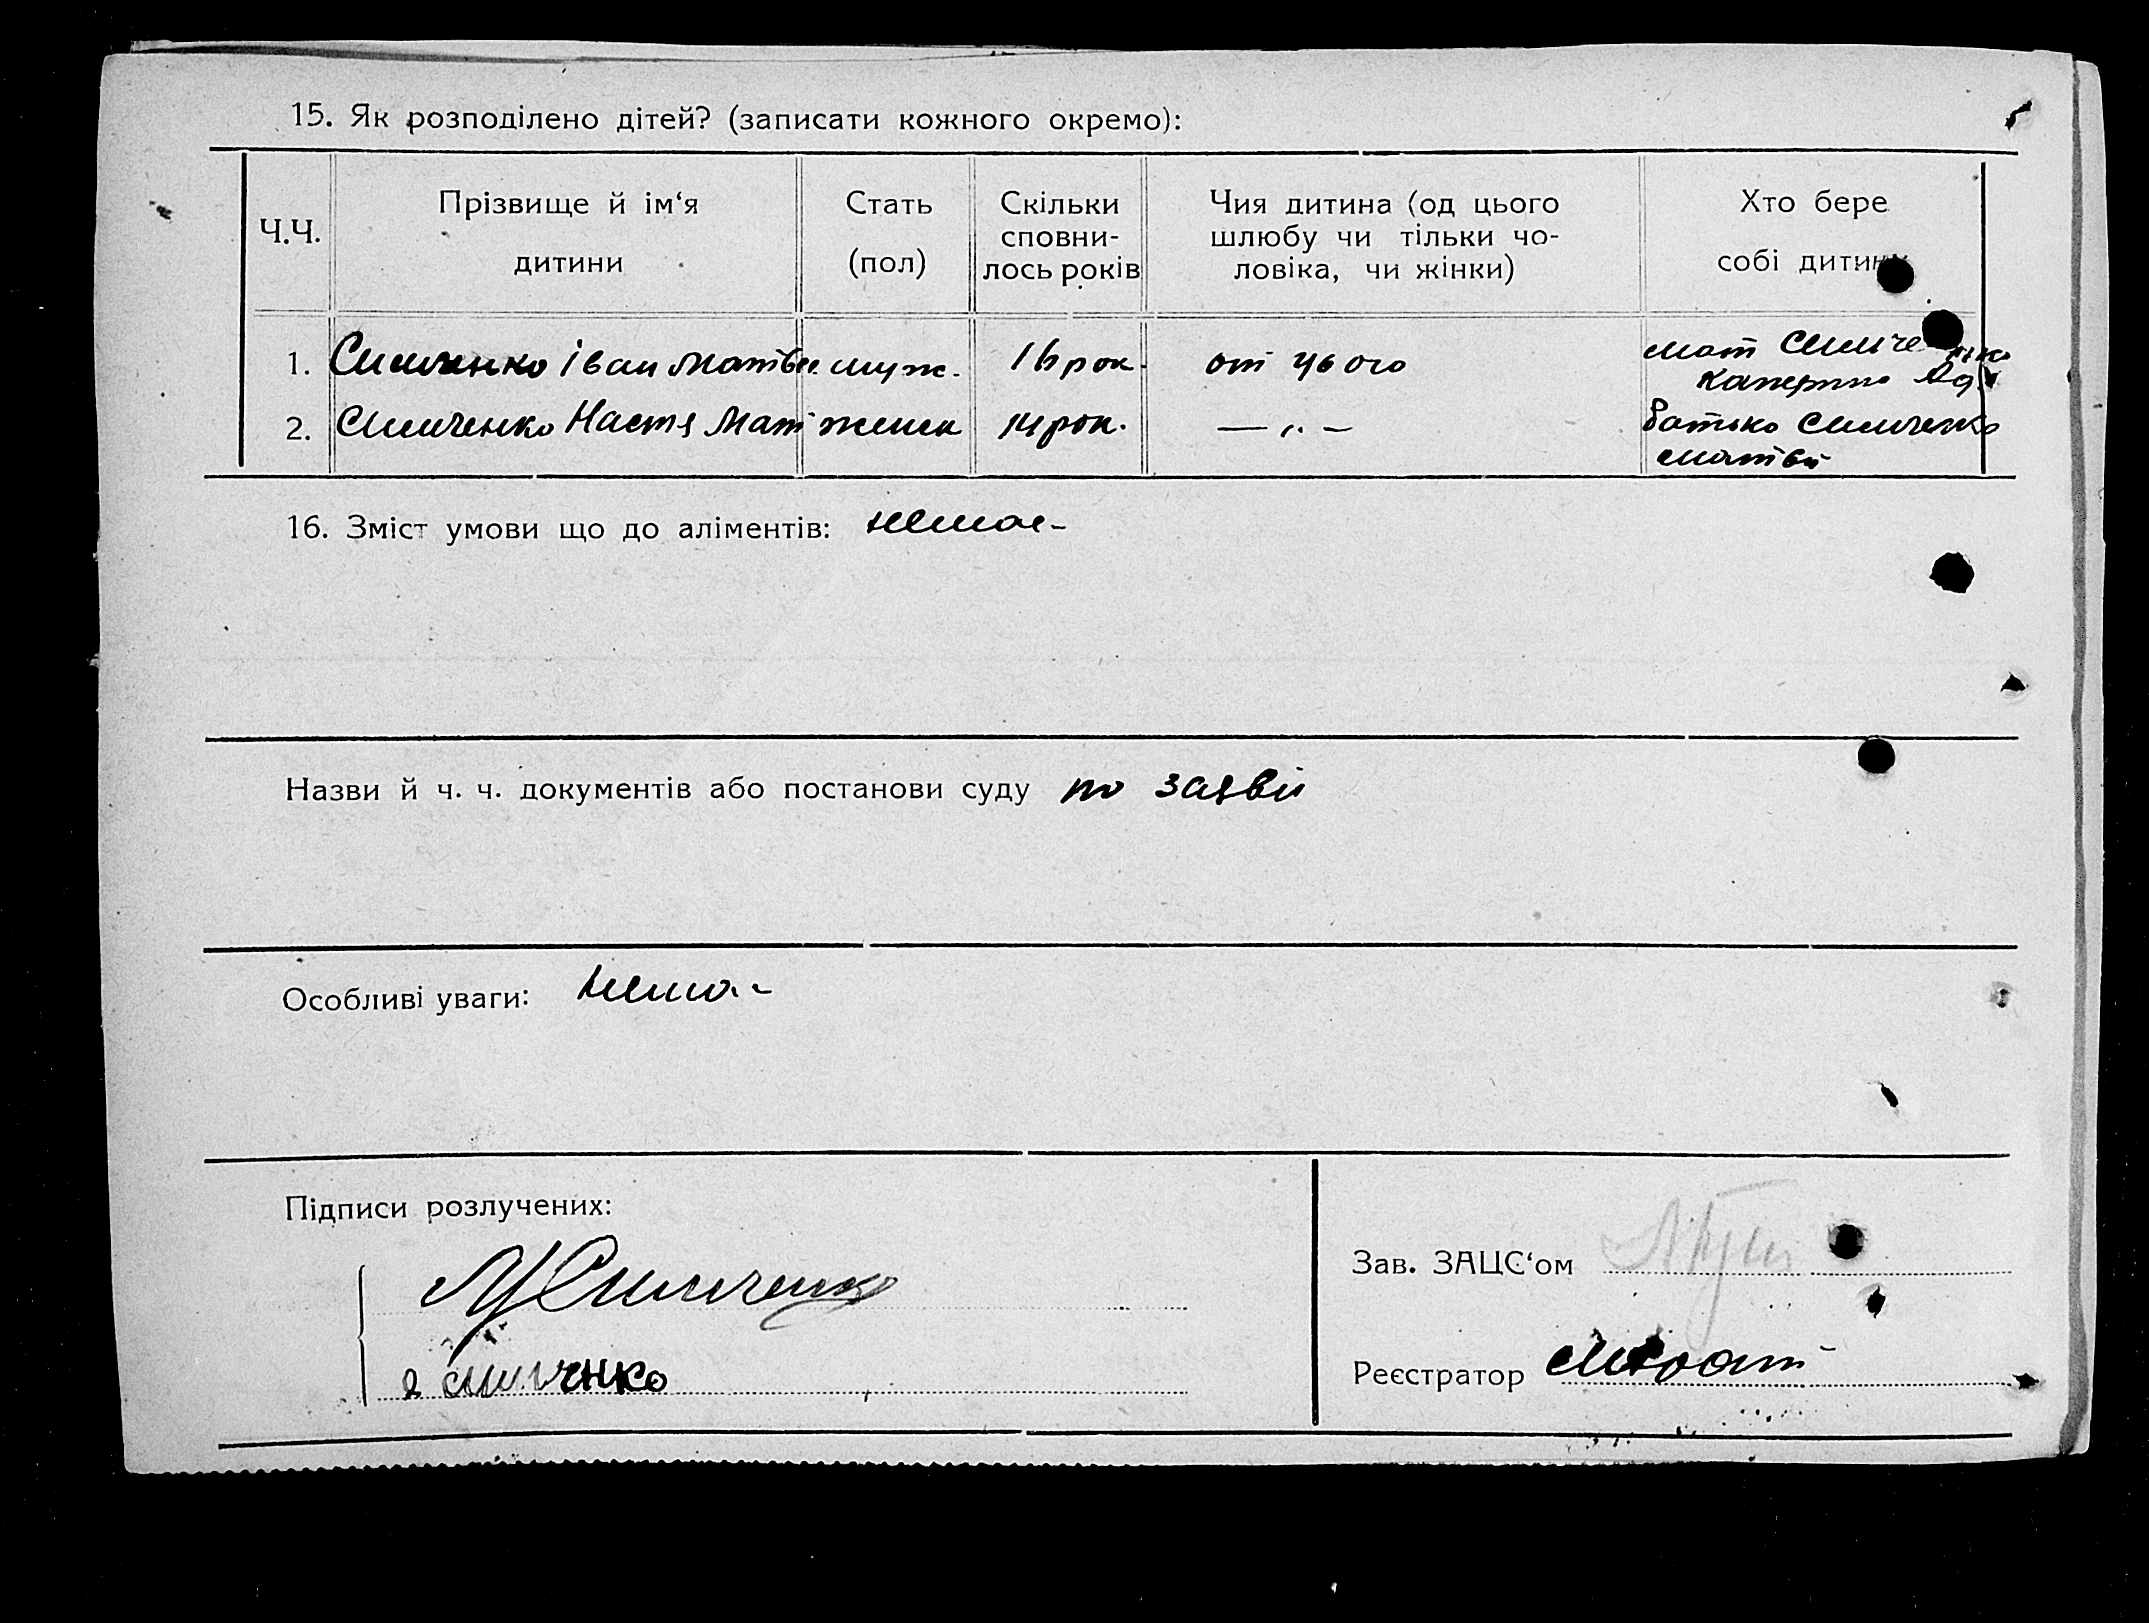 15. Як розподілено дітей? (записати кожного окремо):
Ч.Ч.
Прізвище й ім‘я
дитини
Стать
(пол)
Скільки
сповни-
лось років
Чия дитина (од цього
шлюбу чи тільки чо-
ловіка, чи жінки)
Хто бере
собі дитину
1. Симченко Іван Матвє. муж. 16 рок. от цього мат Симченко
2. Симченко Настя Мат женск 14 рок. — „ — батько Симченко
Матвій
16. Зміст умови що до аліментів: немає -
Назви й ч. ч. документів або постанови суду по заяви
Особливі уваги: нема -
Підписи розлучених:
М Симченко
Симченко
Зав. ЗАЦС‘ом
Реєстратор